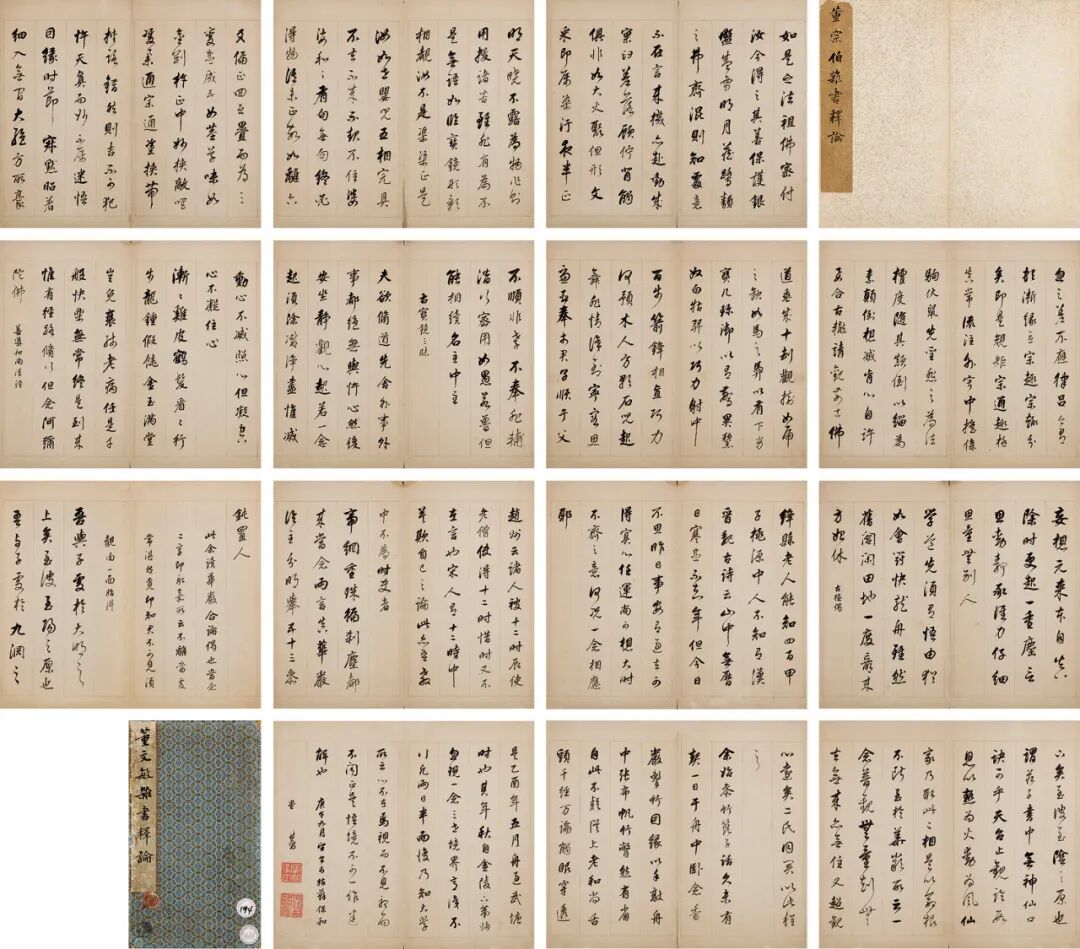 董宗伯雜書釋論
如是之法祖佛密付
汝今得之其善保護銀
盌盛雪明月藏鷺類
之弗齊混則知處意
不在言來機亦赴動成
窠臼差落顧佇背觸
俱非如大火聚但形文
彩即屬染汙夜半正
明天曉不露為物作則
用拔諸苦雖非有為不
是無語如臨寶鏡形影
相覩汝不是渠渠正是
汝如世嬰兒五相完具
不去不來不起不住婆
婆和和有句無句終必
得物語未正故如離六
爻偏正回互疊而為三
變盡成五如荎草味如
金剛杵正中妙挾敲唱
雙舉通宗通塗挾帶
挾路錯然則吉不可犯
忤天真而妙不屬迷悟
因緣時節寂然昭著
細入無間大絕方所毫
忽之差不應律呂今有
頓漸緣立宗趣宗趣分
矣即是規矩宗通趣極
真常流注外寂中搖係
駒伏鼠先聖悲之為法
檀度隨其顛倒以緇為
素顛倒想滅肯心自許
要合古轍請觀前古佛
道垂成十劫觀樹如虎
之缺如馬之馵以有下劣
寶几珍御以有驚異黧
奴白牯羿以巧力射中
百步箭鋒相直巧力
何預木人方歌石兒起
舞非情識到寧容思
慮臣奉於君子順于父
不順非孝不奉非輔
潛行密用如愚若魯但
能相續名主中主
古寶鏡三昧
夫欲修道先去外事外
事都絕無與忤心然後
安坐靜觀心起若一念
起須除滅淨盡惟滅
動心不滅照心但凝空
心不凝住心
漸漸雞皮鶴髮看看行
步龍鍾假饒金玉滿堂
豈免衰殘老病任是千
般快樂無常終是到來
惟有徑路修行但念阿彌
陀佛 善導和尚法語
妄想元來本自真
除時更起一重塵言
思動靜承誰力仔細
思量無別人
學道先須有悟由猶
如曾鬥快龍舟雖然
舊閣閒田地一度贏來
方始休 古德偈
絳縣老人能知四百甲
子桃源中人不知有漢
晉魏古詩云山中無曆
日寒盡不知年但今日
不思昨日事安有過去可
得冥心任運尚可想六時
不齊之意何況一念相應
耶
趙州云諸人被十二時辰使
老僧使得十二時惜時又不
在言也宋人有十二時中
莫欺自己之論此亦吾教
中不為時使者
帝網重珠徧剎塵都
來當念兩言真華嚴
論主分明舉五十三參
鈍置人
此余讀華嚴合論偈也當念
二字即永嘉所云不離當處
常湛然覓即知君不可見須
覿面一面始得
吾與子處於大明之
上矣至彼至陽之原也
吾與子處於九淵之
下矣至彼至陰之原也
謂莊子書中無神仙口
訣可乎天台止觀論
息以熱為火動為風仙
家乃取此之相是以
不斷至於華嚴所云一
念普觀無量劫無
去無來亦無住又超
心意矣二氏同異以此推
之
余始參竹篦子話久未有
契一日于舟中臥念香
嚴擊竹因緣以手敲舟
中張布帆竹瞥然有省
自此不疑從上老和尚舌
頭千經萬論觸眼穿透
是乙酉年五月舟過武塘
時也其年秋自金陵下第歸
忽現一念三世境界意識不
行凡兩日半而復乃知大學
所云心不在焉視而不見聽而
不聞正是悟境不可一作迷
解也 庚午九月
其昌
董文敏雜書釋論
194